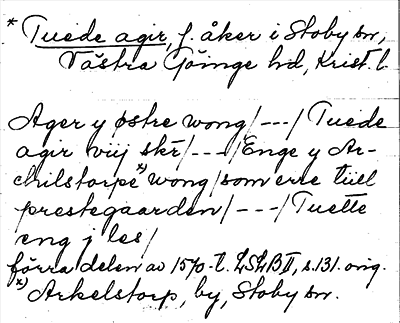 * Tuede agir, f. åker i Stoby sn,
Västra Göinge hd, Krist. l.
Ager y østre wong/---/Tuede
agir viij skr/---/Enge y Ar-
chilstorpe*) wong/som erre tüll
prestegaarden/---/Tuette
eng j les/
förra delen av 1570-t. LSLB II, s.131. orig.
*) Arkelstorp, by, Stoby sn.